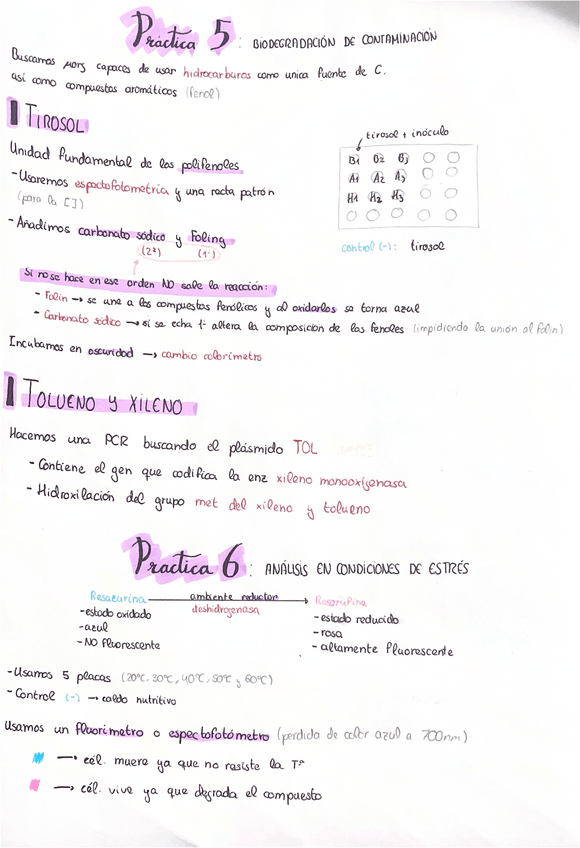 Práctica 5: BIODEGRADACIÓN DE CONTAMINACIÓN
Buscamos µorg capaces de usar hidrocarburos como unica fuente de C.
así como compuestos aromáticos (fenol)
TIROSOL
Unidad fundamental de los polifenoles
- Usaremos espectofotometría y una recta patrón
(para la [])
- Añadimos carbonato sódico y Foling
(2º) (1º)
tirosol + inóculo
B1 B2 B3
A1 A2 A3
H1 H2 H3
control (-): tirosol
Si no se hace en ese orden NO sale la reacción:
- Folin → se une a los compuestos fenólicos y al oxidarlos se torna azul
- Carbonato sódico → si se echa 1º altera la composicion de los fenoles (impidiendo la unión al folin)
Incubamos en oscuridad → cambio colorímetro
TOLUENO Y XILENO
Hacemos una PCR buscando el plásmido TOL
- Contiene el gen que codifica la enz xileno monooxigenasa
- Hidroxilación del grupo met del xileno y tolueno
Práctica 6: ANÁLISIS EN CONDICIONES DE ESTRÉS
Resazurina ambiente reductor → Resorufina
deshidrogenasa
- estado oxidado
- azul
- NO fluorescente
- estado reducido
- rosa
- altamente fluorescente
- Usamos 5 placas (20ºC, 30ºC, 40ºC, 50ºC y 60ºC)
- Control (-) → caldo nutritivo
Usamos un fluorimetro o espectofotómetro (perdida de color azul a 700nm)
→ cél. muere ya que no resiste la Tª
→ cél. vive ya que degrada el compuesto